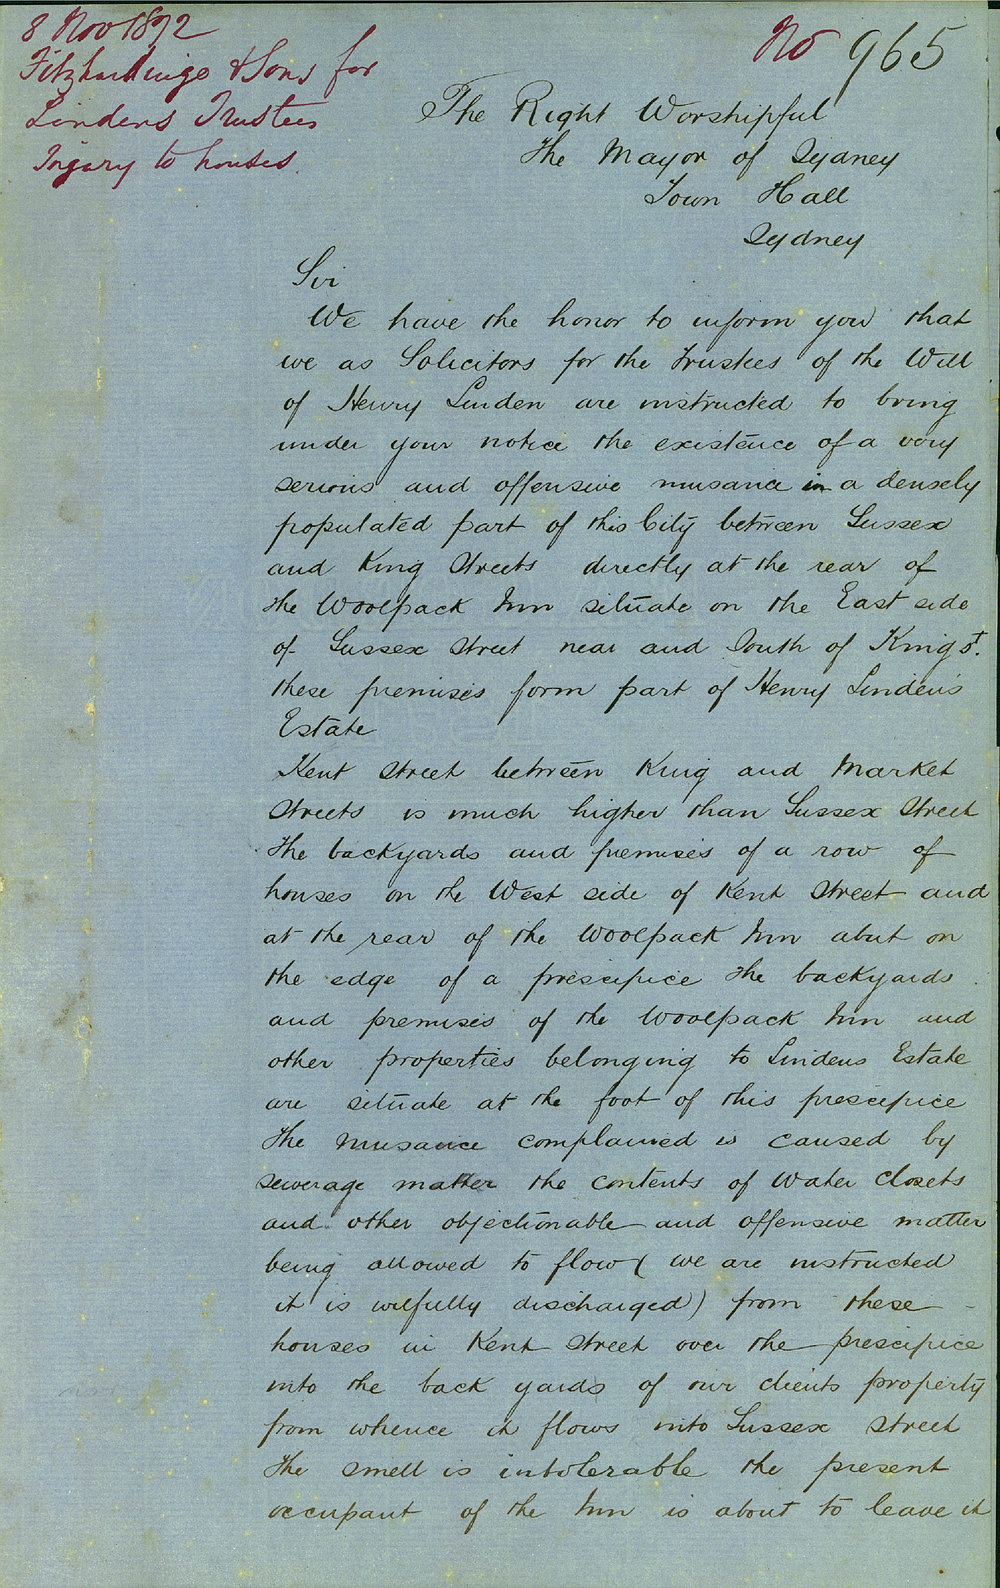 8 Nov 1872
Fitzhardinge & Sons for
Lindens Trustees
Injury to houses.
No 965
The Right Worshipful
The Mayor of Sydney
Town Hall
Sydney
Sir
We have the honor to inform you that
we as Solicitors for the Trustees of the Will
of Henry Linden are instructed to bring
under your notice the existence of a very
serious and offensive nuisance in a densely
populated part of this City between Sussex
and King Streets directly at the rear of
the Woolpack Inn situate on the East side
of Sussex Street near and South of King St.
these premises form part of Henry Linden's
Estate
Kent Street between King and Market
Streets is much higher than Sussex Street
The backyards and premises of a row of
houses on the West side of Kent Street and
at the rear of the Woolpack Inn abut on
the edge of a prescipice The backyards
and premises of the Woolpack Inn and
other properties belonging to Lindens Estate
are situate at the foot of this prescipice
The nusance complained is caused by
sewerage matter the contents of water closets
and other objectionable and offensive matter
being allowed to flow (we are instructed
it is wilfully discharged) from these
houses in Kent Street over the prescipice
into the back yards of our clients property
from whence it flows into Sussex Street
The smell is intolerable the present
occupant of the Inn is about to leave it